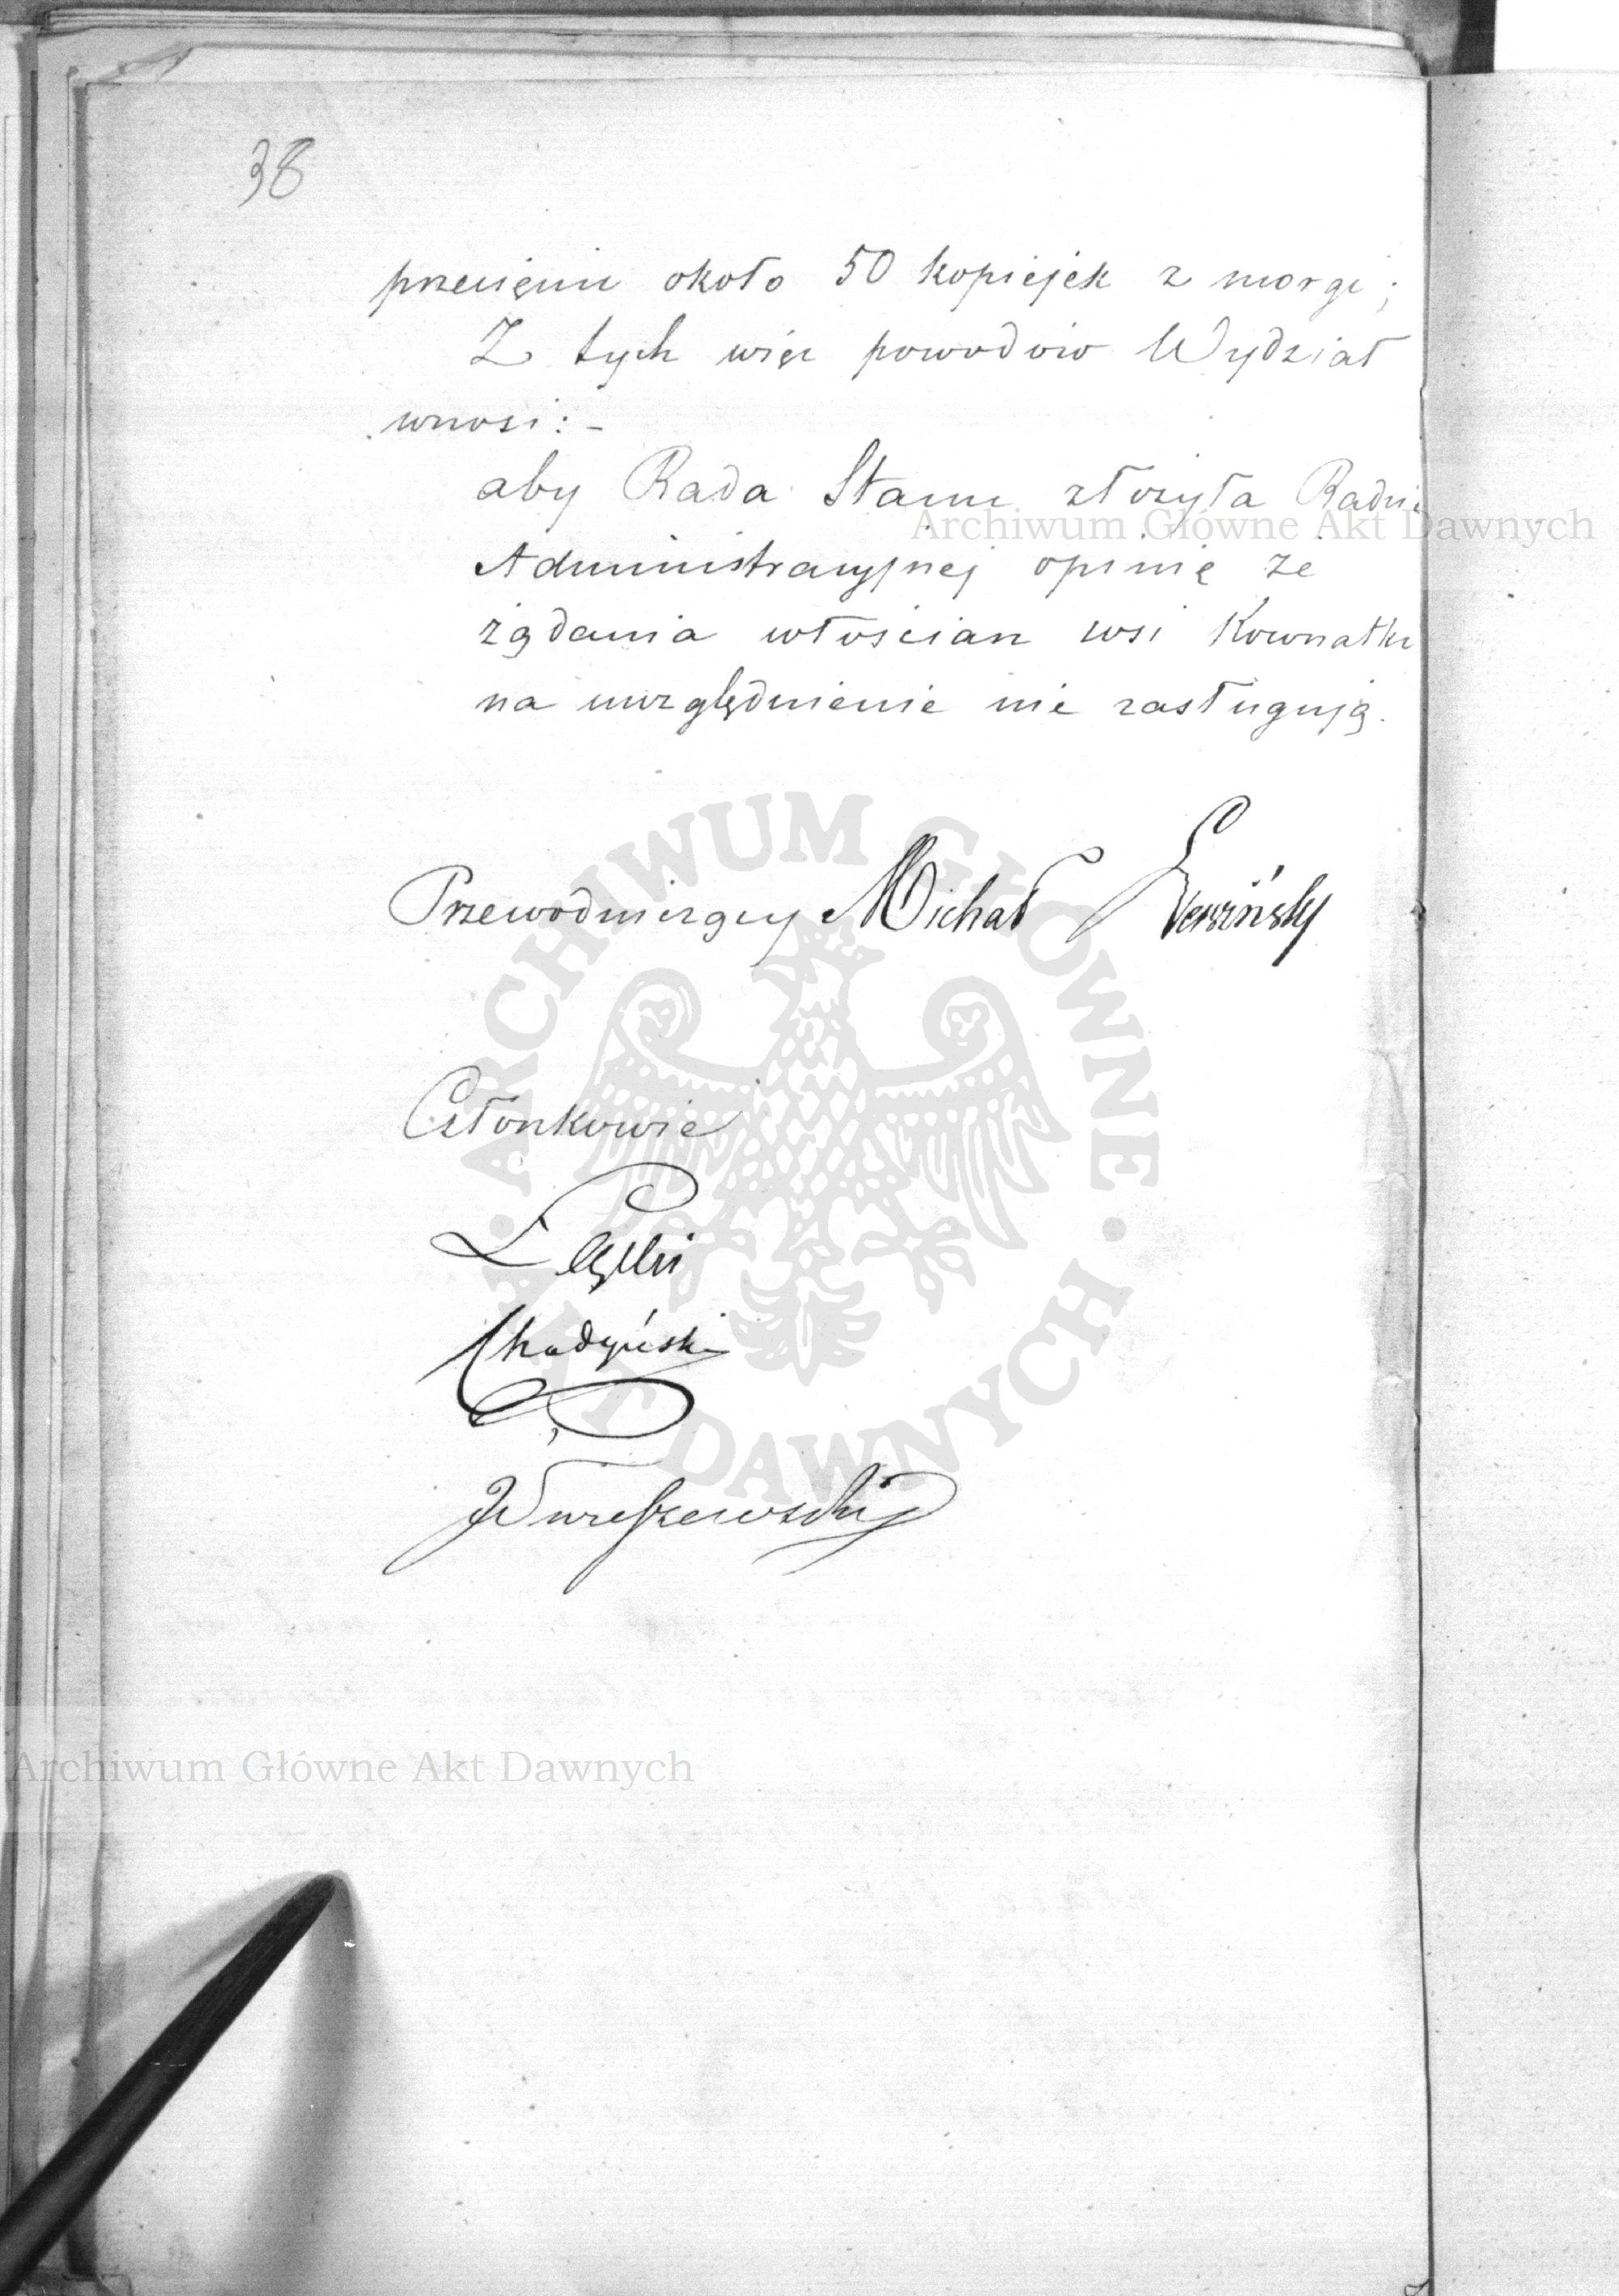 38
przecięciu około 50 kopiejek z morgi;
Z tych więc powodów Wydział
wnosi:-
aby Rada Stanu złożyła Radzie
Administracyjnej opinię że
żądania włościan wsi Kownatki
na uwzględnienie nie zasługują.
Przewodniczący Michał
Członkowie
Łęski
Chądzyński
Archiwum Główne Akt Dawnych
ARCHIWUM GŁÓWNE AKT DAWNYCH
Archiwum Główne Akt Dawnych